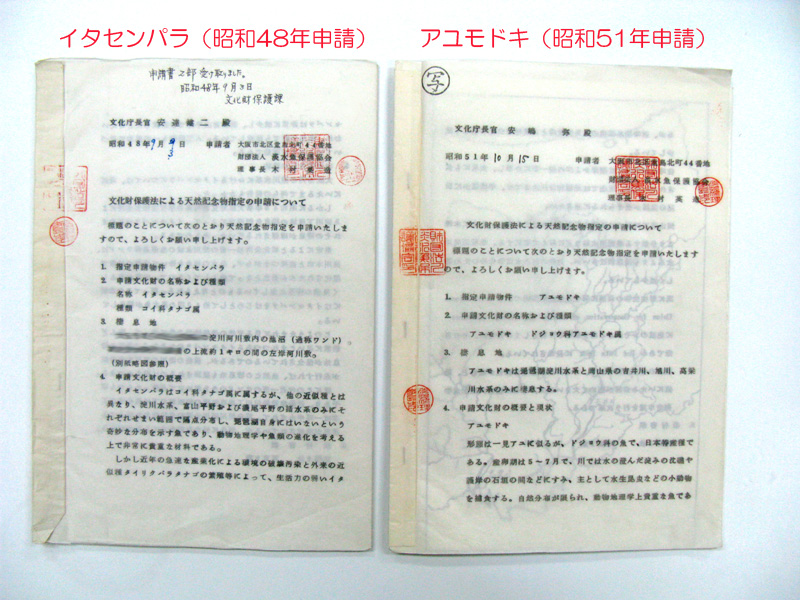 イタセンパラ（昭和48年申請）
アユモドキ（昭和51年申請）
申請書2部受け取りました。
昭和48年9月3日
文化財保護課
文化庁長官 安達健二 殿
昭和48年9月3日 申請者 大阪市北区堂島北町44番地
財団法人 淡水魚保護協会
理事長 木村英造
文化財保護法による天然記念物指定の申請について
標題のことについて次のとおり天然記念物指定を申請いたしま
すので、よろしくお願い申し上げます。
1. 指定申請物件 イタセンパラ
2. 申請文化財の名称および種類
名称 イタセンパラ
種類 コイ科タナゴ属
3. 棲息地
淀川河川敷内の池沼（通称ワンド）
の上流約1キロの間の左岸河川敷。
（別紙略図参照）
4. 申請文化財の概要
イタセンパラはコイ科タナゴ属に属するが、他の近似種とは
異なり、淀川水系、富山平野および濃尾平野の諸水系のみにそ
れぞれせまい範囲で隔点分布し、琵琶湖自身にはいないという
奇妙な分布を示す魚であり、動物地理学や魚類の進化を考える
上で非常に貴重な材料である。
しかし近年の急速な産業化による環境の破壊汚染と外来の近
似種タイリクバラタナゴの繁殖等によって、生活力の弱いイタ
写
文化庁長官 安嶋 弥 殿
昭和51年10月15日 申請者 大阪市北区堂島北町44番地
財団法人 淡水魚保護協会
理事長 木村英造
文化財保護法による天然記念物指定の申請について
標題のことについて次のとおり天然記念物指定を申請いたします
ので、よろしくお願い申し上げます。
1. 指定申請物件 アユモドキ
2. 申請文化財の名称および種類
アユモドキ ドジョウ科アユモドキ属
3. 棲息地
アユモドキは琵琶湖淀川水系と岡山県の吉井川、旭川、高梁
川水系のみに棲息する。
4. 申請文化財の概要と現状
アユモドキ
形態は一見アユに似るが、ドジョウ科の魚で、日本特産種で
ある。産卵期は5～7月で、川では水の澄んだ淀みの伏渡や
護岸の石垣の間などにすみ、主として水生昆虫などの小動物
を捕食する。自然分布が限られ、動物地理学上貴重な魚であ